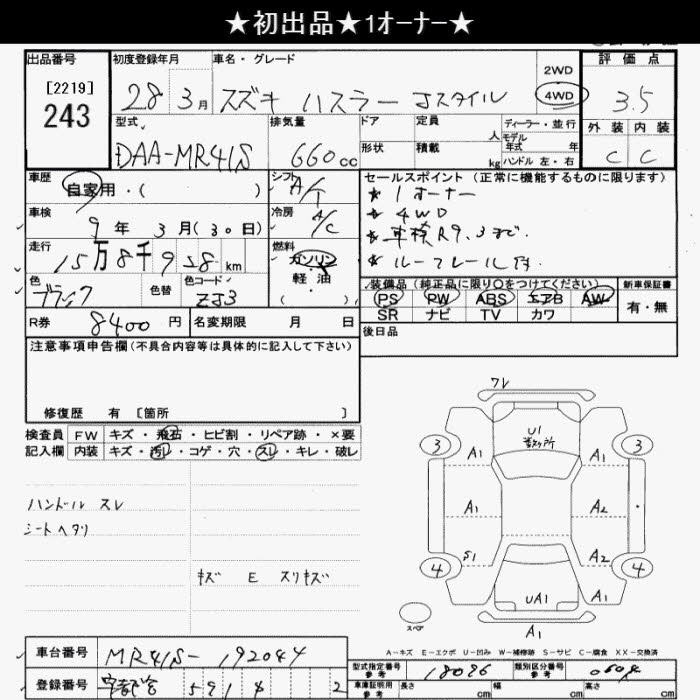 ★初出品★1オーナー★
出品番号
[2219]
243
初度登録年月
28年 3月
車名・グレード
スズキ ハスラー Jスタイル
2WD
4WD
評価点
3.5
外装 内装
C C
型式
DAA-MR41S
排気量
660cc
ドア
形状
定員 人
積載 kg
ディーラー・並行
モデル
年式 年
ハンドル 左・右
車歴
自家用・( )
シフト
A/T
車検
9年 3月(30日)
冷房
A/C
走行
15万8千928km
燃料
ガソリン
軽油
( )
色
ブラック
色替
色コード
ZJ3
R券 8400円
名変期限 月 日
セールスポイント(正常に機能するものに限ります)
★ 1オーナー
★ 4WD
★ 車検R9.3まで.
★ ルーフレール付
装備品(純正品に限り○をつけてください)
新車保証書
PS PW ABS エアB AW
SR ナビ TV カワ
有・無
後日品
注意事項申告欄(不具合内容等は具体的に記入して下さい)
修復歴 有 [箇所 ]
検査員
記入欄
FW キズ・飛石・ヒビ割・リペア跡・×要
内装 キズ・汚レ・コゲ・穴・スレ・キレ・破レ
ハンドル スレ
シートヘタリ
キズ E スリキズ
ワレ
U1
3 3
A1 A1
A1 A2
S1 A2
4 4
A1
UA1
スペア
A1
A-キズ E-エクボ U-凹み W-補修跡 S-サビ C-腐食 XX-交換済
車台番号 MR41S-192044
登録番号 591 2
型式指定番号
参考
18096
類別区分番号
参考
車庫証明用
参考
長さ cm
幅 cm
高さ cm